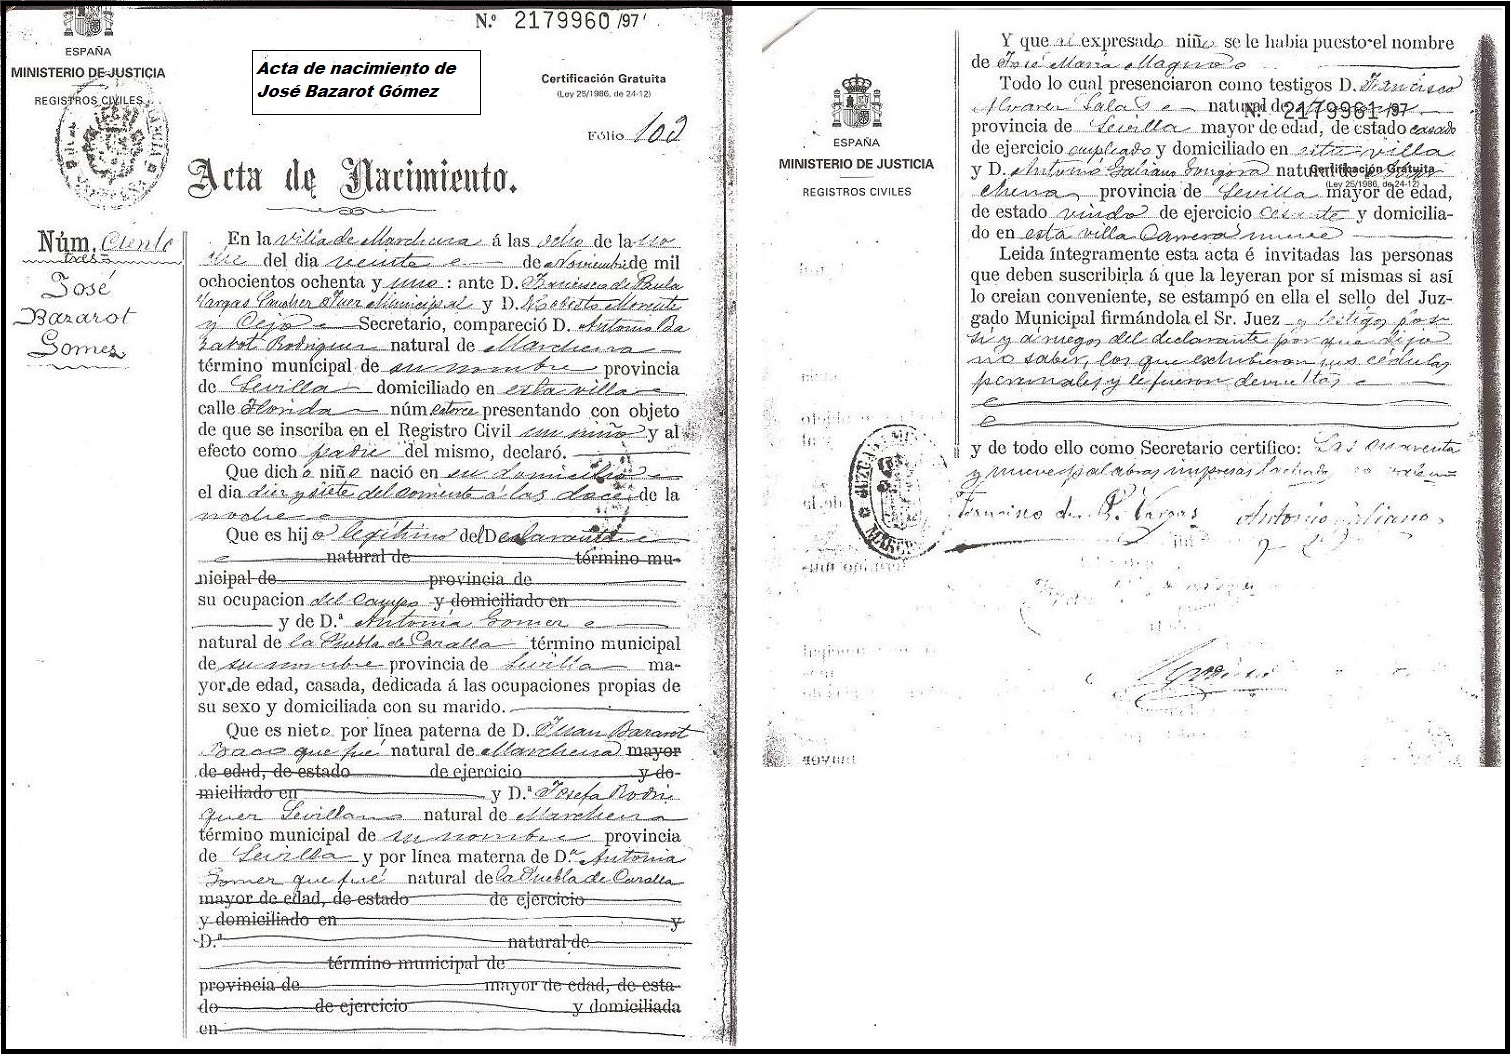 N.º 2179960 /97
ESPAÑA
MINISTERIO DE JUSTICIA
REGISTROS CIVILES
Acta de nacimiento de
José Bazarot Gómez
Certificación Gratuita
(Ley 25/1986, de 24-12)
Fólio 102
Acta de Nacimiento.
Núm. Ciento
tres
José
Bazarot
Gomez
En la villa de Marchena á las ocho de la no
che del dia veinte de Noviembre de mil
ochocientos ochenta y uno: ante D. Francisco de Paula
Vargas Juez Municipal y D. Roberto Morente
y Secretario, compareció D. Antonio Ba
zarot Rodriguez natural de Marchena
término municipal de su nombre provincia
de Sevilla domiciliado en esta villa
calle Florida núm catorce presentando con objeto
de que se inscriba en el Registro Civil un niño y al
efecto como padre del mismo, declaró.
Que dicho niño nació en su domicilio
el dia diez y siete del corriente á las doce de la
noche
Que es hijo legítimo del Declarante
natural de término mu-
nicipal de provincia de
su ocupacion del campo y domiciliado en
y de D.ª Antonia Gomez
natural de la Puebla de Cazalla término municipal
de su nombre provincia de Sevilla ma-
yor de edad, casada, dedicada á las ocupaciones propias de
su sexo y domiciliada con su marido.
Que es nieto por línea paterna de D. Juan Bazarot
que fué natural de Marchena mayor
de edad, de estado de ejercicio y do-
miciliado en y D.ª Josefa Rodri
guez Sevillano natural de Marchena
término municipal de su nombre provincia
de Sevilla y por línea materna de D.ª Antonia
Gomez que fué natural de la Puebla de Cazalla
mayor de edad, de estado de ejercicio
y domiciliado en y
D.ª natural de
término municipal de
provincia de mayor de edad, de esta-
do de ejercicio y domiciliada
en
ESPAÑA
MINISTERIO DE JUSTICIA
REGISTROS CIVILES
Y que al expresado niño se le habia puesto el nombre
de José María Magno
Todo lo cual presenciaron como testigos D. Francisco
Alvarez Salas natural de
N.º 2179961 /97
provincia de Sevilla mayor de edad, de estado casado
de ejercicio empleado y domiciliado en esta villa
y D. Antonio Galiano Gongora natural de
Certificación Gratuita
(Ley 25/1986, de 24-12)
chena provincia de Sevilla mayor de edad,
de estado viudo de ejercicio cesante y domicilia-
do en esta villa Carrera nueve
Leida íntegramente esta acta é invitadas las personas
que deben suscribirla á que la leyeran por sí mismas si así
lo creian conveniente, se estampó en ella el sello del Juz-
gado Municipal firmándola el Sr. Juez y testigos por
sí y á ruegos del declarante por que dijo
no saber, los que exhibieron sus cédulas
personales y le fueron devueltas
y de todo ello como Secretario certifico: Las cuarenta
y nueve palabras impresas tachadas no valen
Francisco de P. Vargas
Antonio Galiano